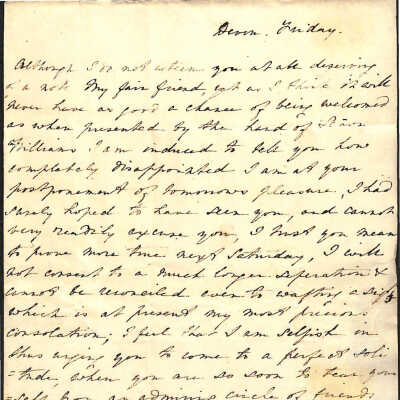 Devon. Friday.
Although I do not esteem you at all deserving
of a note My fair friend, yet as I think it will
never have as good a chance of being welcomed
as when presented by the hand of
Williams I am induced to tell you how
completely disappointed I am at your
postponement of tomorrows pleasure, I had
surely hoped to have seen you, and cannot
very readily excuse you, I trust you mean
to prove more true next Saturday, I will
not consent to a much longer seperation &
cannot be reconciled even to wafting a sigh
which is at present my most precious
consolation; I feel that I am selfish in
thus urging you to come to a perfect soli
=tude, when you are so soon to tear your
=self for an admiring circle of friends